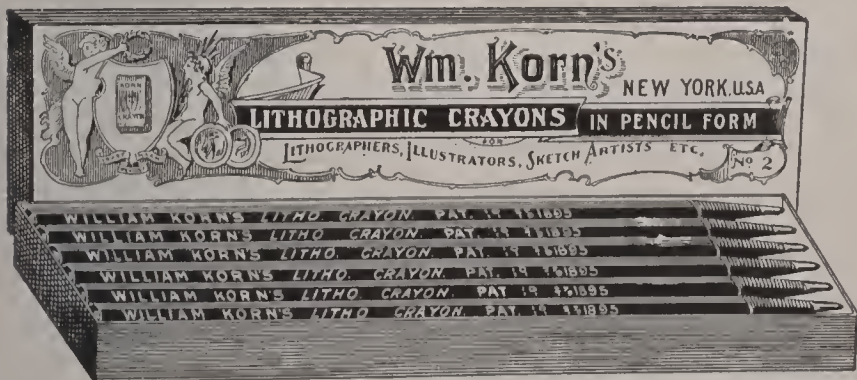 KORN
Wm. Korn's
NEW YORK, U.S.A
LITHOGRAPHIC CRAYONS
IN PENCIL FORM
FOR
LITHOGRAPHERS, ILLUSTRATORS, SKETCH ARTISTS ETC,
No 2
WILLIAM KORN'S LITHO. CRAYON. PAT. 1895
WILLIAM KORN'S LITHO. CRAYON. PAT. 1895
WILLIAM KORN'S LITHO. CRAYON. PAT. 1895
WILLIAM KORN'S LITHO. CRAYON. PAT 1895
WILLIAM KORN'S LITHO. CRAYON. PAT 1895
WILLIAM KORN'S LITHO. CRAYON. PAT. 1895